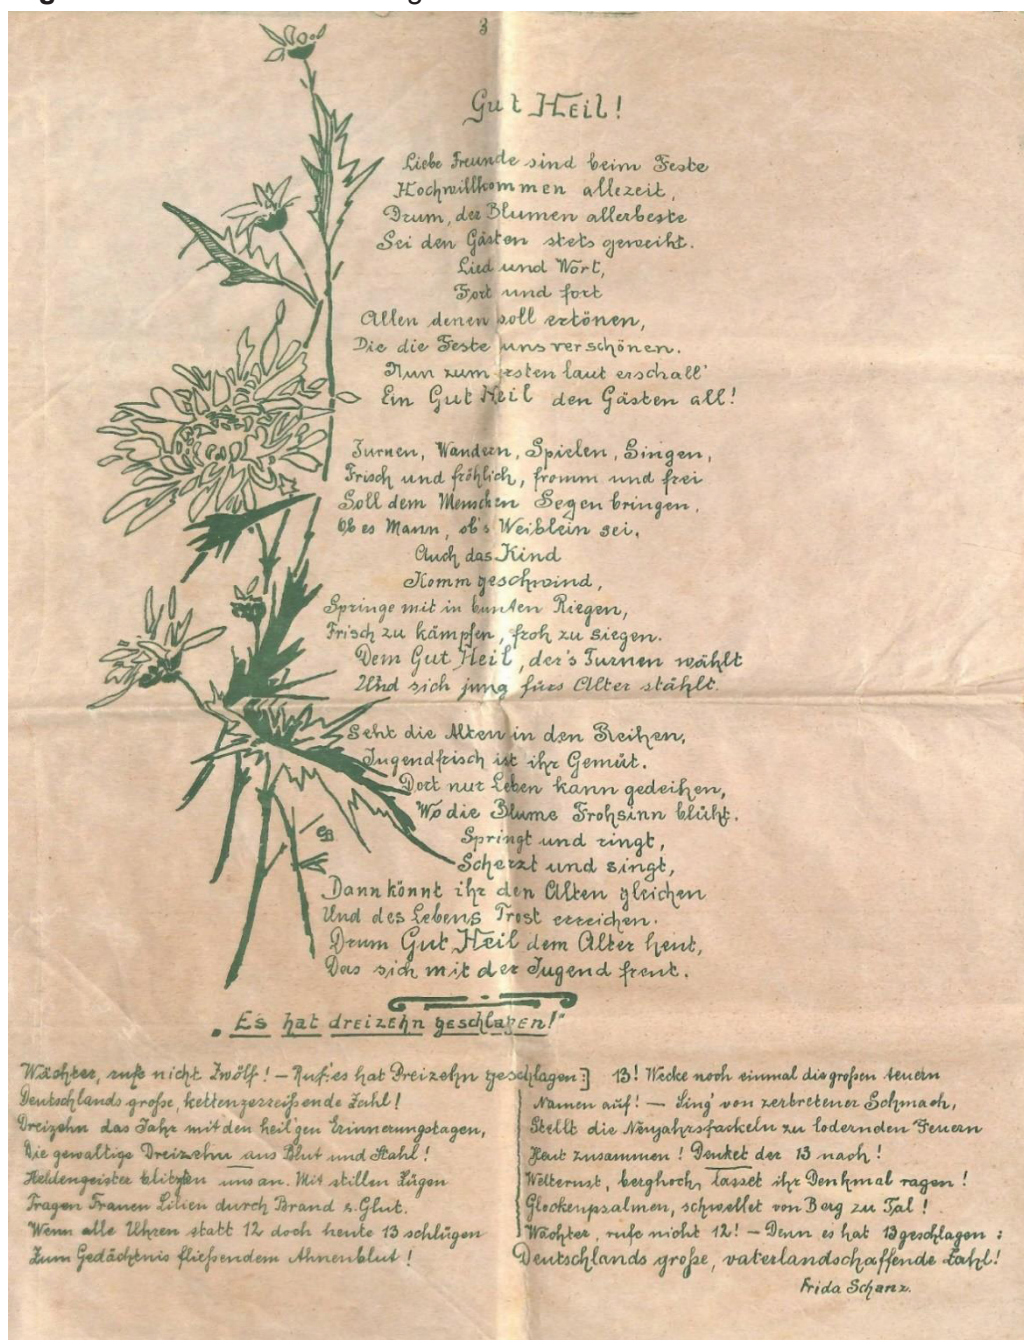 3
Gut Heil!
Liebe Freunde sind beim Feste
Hochwillkommen allezeit,
Drum, der Blumen allerbeste
Sei den Gästen stets geweiht.
Lied und Wort,
Fort und fort
Allen denen soll ertönen,
Die die Feste uns verschönen.
Nun zum ersten laut erschall'
Ein Gut Heil den Gästen all!
Turnen, Wandern, Spielen, Singen,
Frisch und fröhlich, fromm und frei
Soll dem Menschen Segen bringen,
Ob es Mann, ob's Weiblein sei,
Auch das Kind
Komm geschwind,
Springe mit in bunten Riegen,
Frisch zu kämpfen, froh zu siegen.
Dem Gut Heil, der's Turnen wählt
Und sich jung fürs Alter stählt.
Seht die Alten in den Reihen,
Jugendfrisch ist ihr Gemüt.
Dort nur Leben kann gedeihen,
Wo die Blume Frohsinn blüht.
Springt und ringt,
Scherzt und singt,
Dann könnt ihr den Alten gleichen
Und des Lebens Trost erreichen.
Drum Gut Heil dem Alter heut,
Das sich mit der Jugend freut.
„Es hat dreizehn geschlagen!"
Wächter, rufe nicht Zwölf! – Ruf: es hat Dreizehn geschlagen:
Deutschlands große, kettenzerreißende Zahl!
Dreizehn das Jahr mit den heil'gen Erinnerungstagen,
Die gewaltige Dreizehn aus Blut und Stahl!
Heldengeister blitzen uns an. Mit stillen Zügen
Tragen Frauen Lilien durch Brand u. Glut.
Wenn alle Uhren statt 12 doch heute 13 schlügen
Zum Gedächtnis fließendem Ahnenblut!
13! Wecke noch einmal die großen teuern
Namen auf! – Sing' von zertretener Schmach,
Stellt die Neujahrsfackeln zu lodernden Feuern
Heut zusammen! Denket der 13 nach!
Welternst, berghoch, lasset ihr Denkmal ragen!
Glockenpsalmen, schwellet von Berg zu Tal!
Wächter, rufe nicht 12! – Denn es hat 13 geschlagen:
Deutschlands große, vaterlandschaffende Zahl!
Frida Schanz.